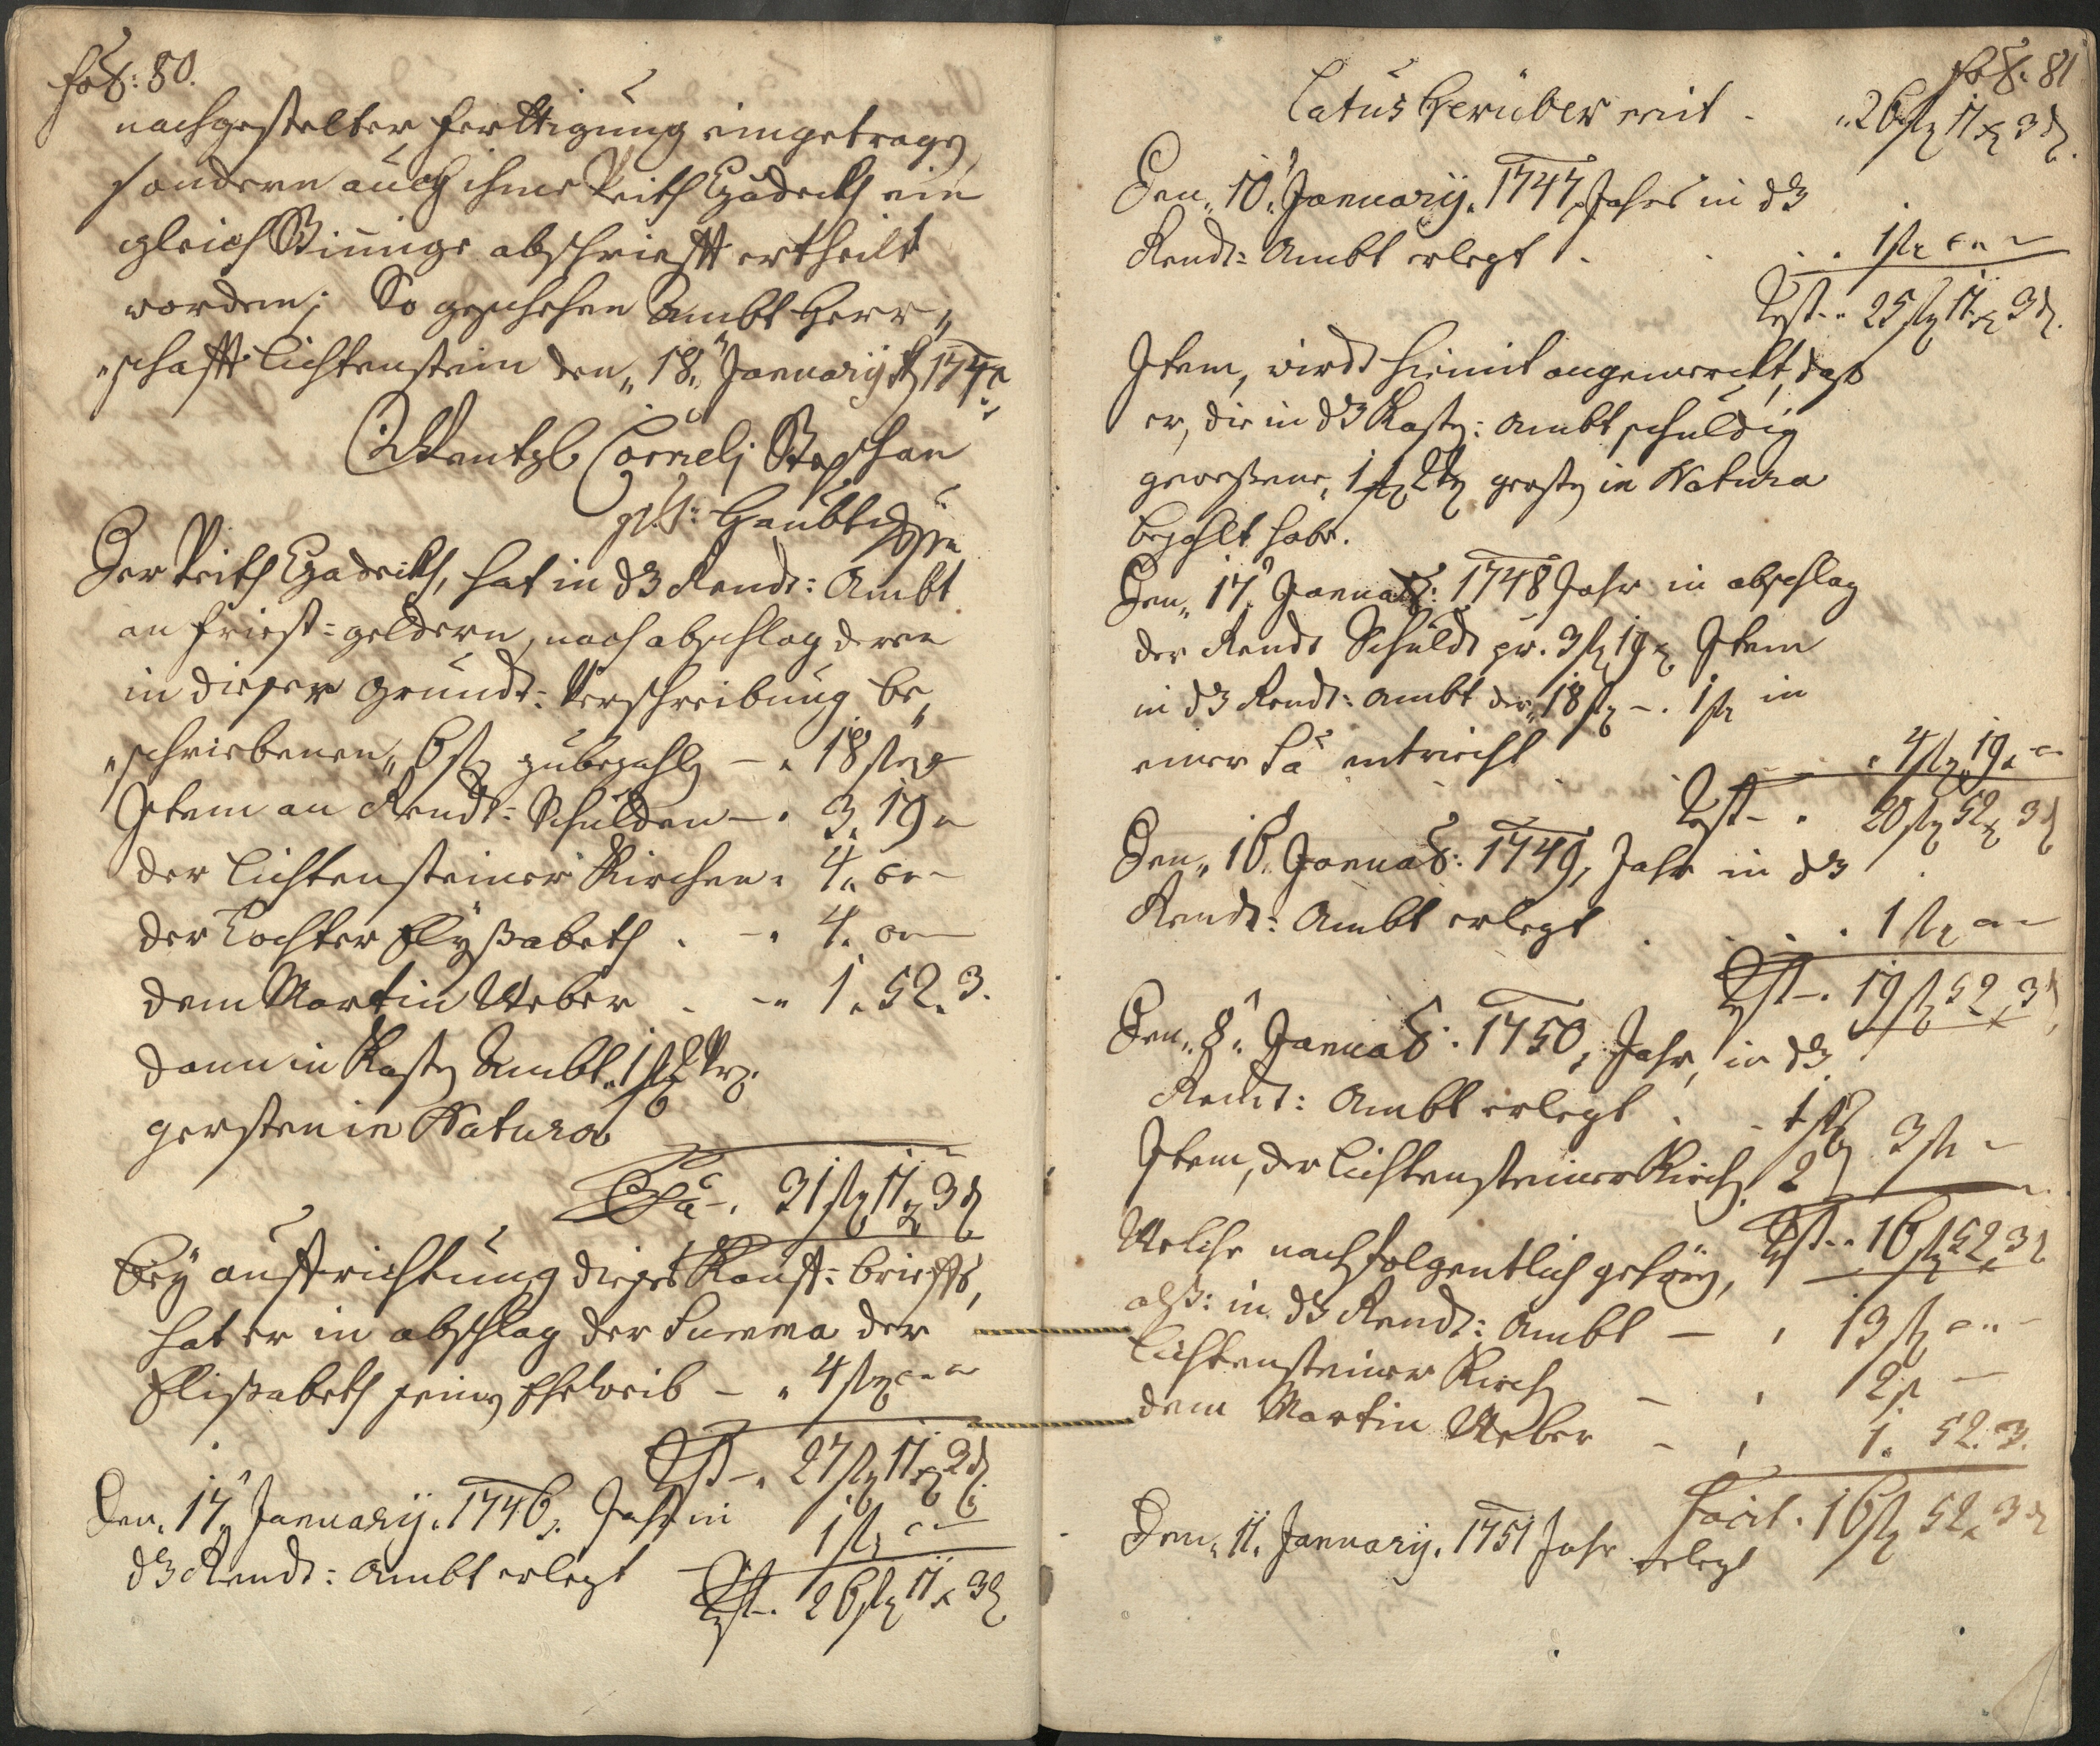 fol: 80.
nachgestelter Ferttigung eingetragen
sondern auch ihme Veith ein
gleich Stimige abschriefft ertheilt
worden; So geschehen Ambt Herr„
„schafft Lichtenstein den „18.“ Januarij
Wentzl Cornelj Stephan
Haubt
Der Veith hat in dz Rendt: Ambt
an Friest=geldern, nach abschlag deren
in dieser Grundt=Verschreibung be„
„schriebenen „6 fl zubezahlen – „ 18 fl
Item an Rendt=Schulden – . 3. 19 „
der Lichtensteiner Kirchen „ 4. „ –
der Tochter Elyßabeth . – „ 4. „ –
dem Martin Weber . – „ 1. 52. 3.
dann in Kasten Ambt. 1
gersten in Natura
Sa –. 31 fl 11 x 3 d
Bey auffrichtung dieses Kauff=brieffs,
hat er in abschlag der Summa der
Elißabeth seinen Eheweib – „ 4 fl „ „
Rst –. 27 fl 11 x 3 d
Den „17.“ Januarij. 1746. Jahr in
dz Rendt: Ambt erlegt 1 fl „ –
Rst –. 26 fl 11 x 3 d
fol: 81
Latus herüber mit . „ 26 fl 11 x 3 d.
Den „10.“ Januarij. 1747. Jahrs in dz
Rendt=Ambt erlegt . . . . 1 fl „ –
Rest – „ 25 fl 11 x 3 d.
Item, wirdt hiemit angemerckt, daß
er, die in dz Kasten: Ambt schuldig
geweßene, 1 gersten in Natura
bezahlt habe.
Den „17.“ Januar: 1748 Jahr in abschlag
der Rendt Schuldt pr. 3 fl 19 x Item
in dz Rendt=Ambt der „18 fl –. 1 fl in
einer Sa entricht . . . „ 4 fl 19 „ –
Rest – . 20 fl 52 x 3 d
Den „16. Januar: 1749, Jahr in dz
Rendt: Ambt erlegt . . . . 1 fl „ –
Rst –. 19 fl 52 x 3 d
Den „8.“ Januar: 1750, Jahr, in dz
Rendt: Ambt erlegt . . 1 fl
Item, der Lichtensteiner Kirch. 2 3 fl –
Rst – „ 16 fl 52 x 3 d
Welche nachfolgentlich gehören,
alß: in dz Rendt: Ambt – , 13 fl „ –
Lichtensteiner Kirch – , 2 fl –
dem Martin Weber – , 1. 52. 3.
Facit . 16 fl 52 x 3 d
Den „11. Januarij. 1751 Jahr erlegt